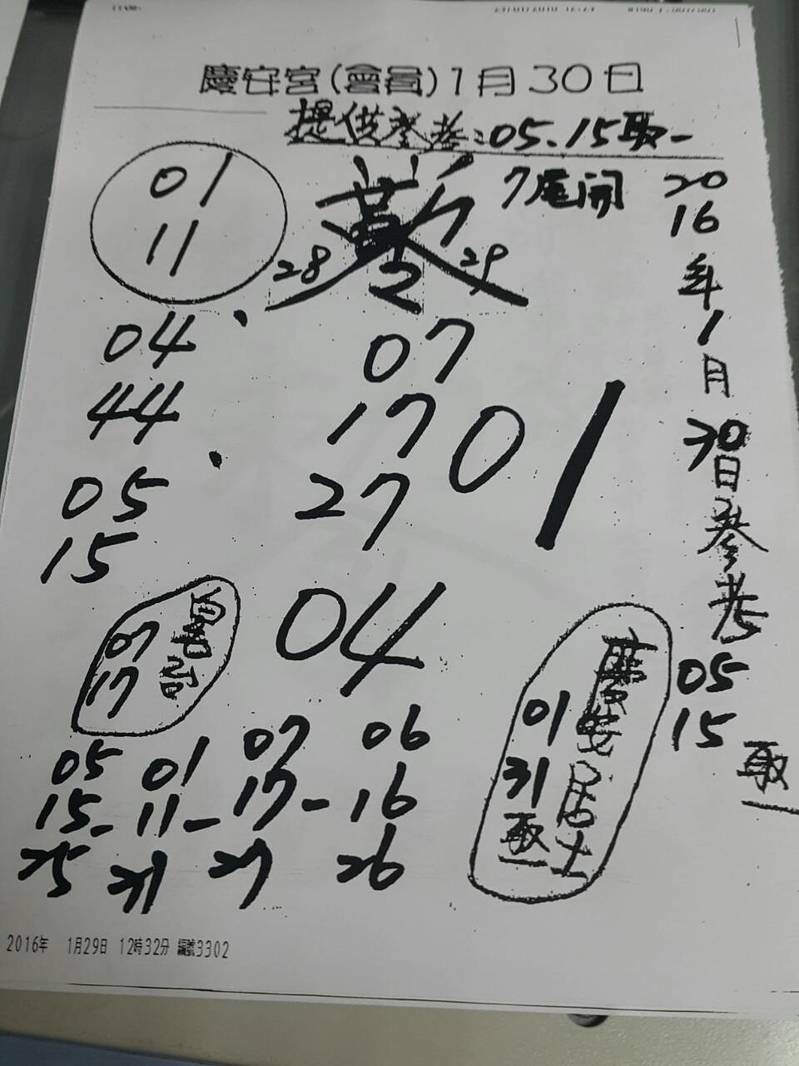 慶安宮(會員)1月30日
提供參考:05、15取一
7尾開
01
11
28
29
2
04
44
05
15
07
17
27
01
04
2016年1月30日參考
05
15
取一
07
17
慶安居士
01
31
取一
05 01 07 06
15-11-17-16
25 31 27 26
2016年 1月29日 12時32分 編號3302